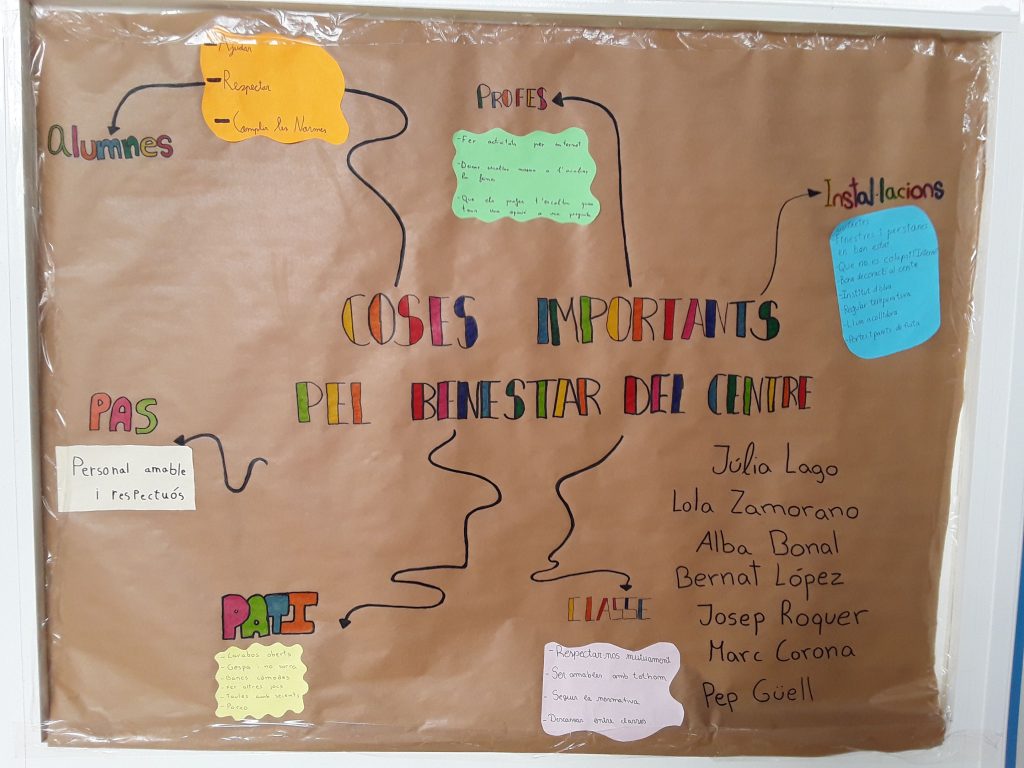 - Ajudar
- Respectar
- Complir les Normes
Alumnes
PROFES
- Fer activitats per internet
- Donar
a l'acabar
la feina
- Que els profes t'escoltin quan
Instal·lacions
- Finestres i persianes
en bon estat
- Que no es colapsi l'Internet
Bona decoració al centre
- Institut
Regular temperatura
- Llum acollidora
COSES IMPORTANTS
PEL BENESTAR DEL CENTRE
PAS
Personal amable
i respectuós
Júlia Lago
Lola Zamorano
Alba Bonal
Bernat López
Josep Roquer
Marc Corona
Pep Güell
PATI
- Lavabos oberts
- Gespa i no sorra
- Bancs còmodes
Fer altres jocs
- Taules amb seients
CLASSE
- Respectar-nos mutuament
- Ser amables amb tothom
- Seguir la normativa
- Descansar entre classes